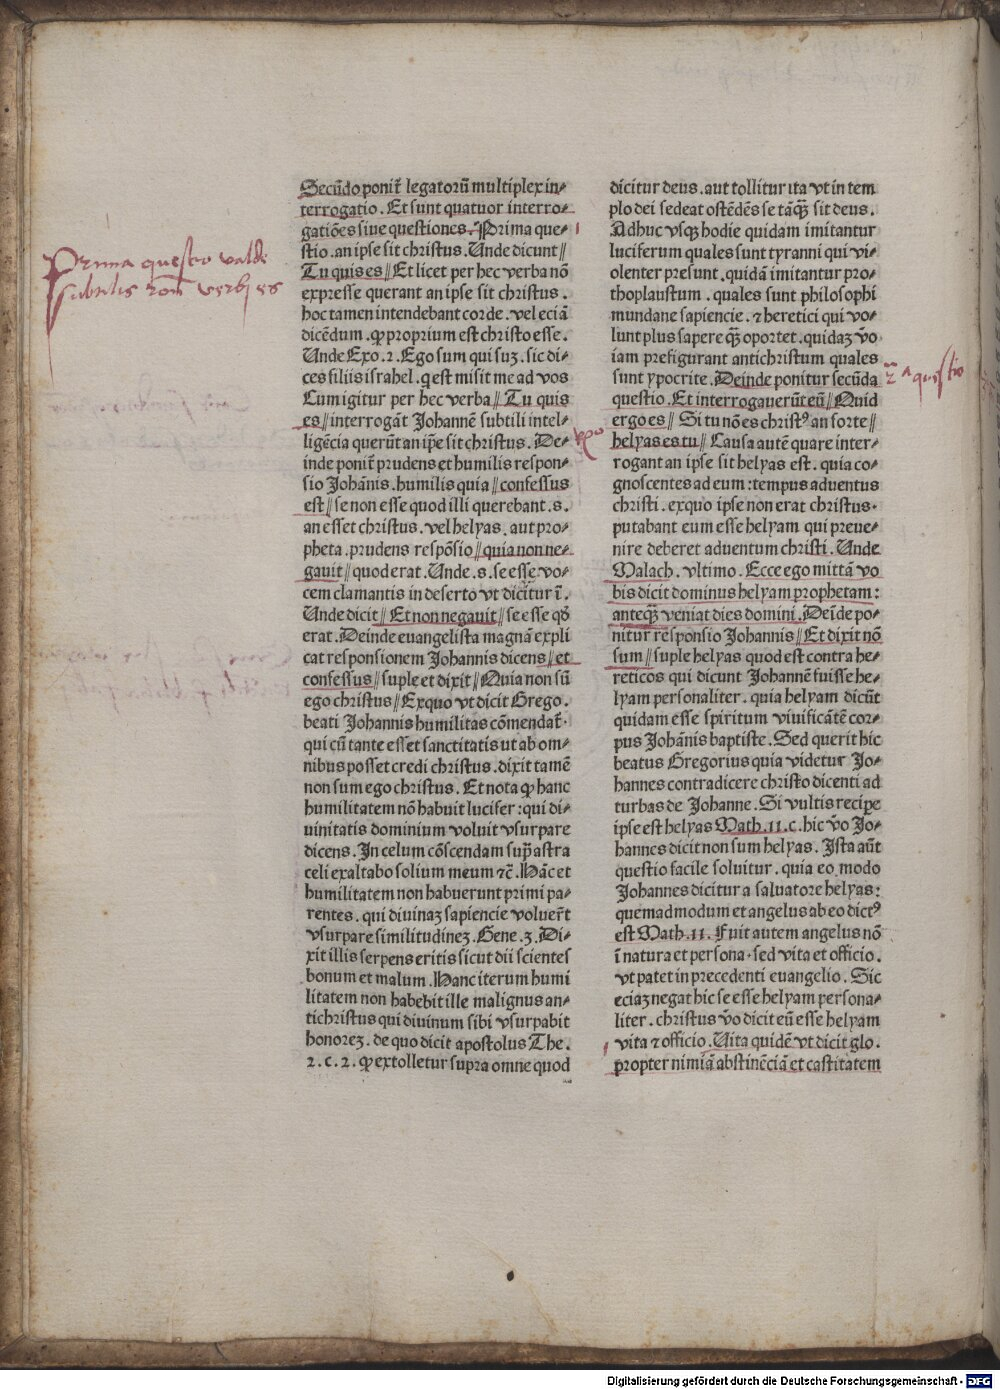 Secūdo ponit᷑ legatorū multiplex in⸗
terrogatio. Et sunt quatuor interro⸗
gatiōes siue questiones. Prima que⸗
stio. an ipse sit christus. Unde dicunt //
Tu quis es // Et licet per hec verba nō
expresse querant an ipse sit christus.
hoc tamen intendebant corde. vel eciā
dicēdum. ꝙ proprium est christo esse.
Unde Exo. 2. Ego sum qui suꝫ. sic di⸗
ces filiis israhel. q est misit me ad vos
Cum igitur per hec verba // Tu quis
es // interrogāt Johannē subtili intel⸗
ligēcia querūt an ip̄e sit christus. De⸗
inde ponit᷑ prudens et humilis respon⸗
sio Johānis. humilis quia // confessus
est // se non esse quod illi querebant .s.
an esset christus. vel helyas. aut pro⸗
pheta. prudens respōsio // quia non ne⸗
gauit // quod erat. Unde .s. se esse vo⸗
cem clamantis in deserto vt dicitur ī.
Unde dicit // Et non negauit // se esse qđ
erat. Deinde euangelista magnā expli
cat responsionem Johannis dicens // et
confessus // suple et dixit // Quia non sū
ego christus // Exquo vt dicit Grego.
beati Johannis humilitas cōmendat᷑.
qui cū tante esset sanctitatis ut ab om⸗
nibus posset credi christus. dixit tamē
non sum ego christus. Et nota ꝙ hanc
humilitatem nō habuit lucifer: qui di⸗
uinitatis dominium voluit vsurpare
dicens. In celum cōscendam sup̄ astra
celi exaltabo solium meum ⁊c̄. Hāc et
humilitatem non habuerunt primi pa⸗
rentes. qui diuinaꝫ sapiencie voluer̄t
vsurpare similitudineꝫ. Gene. 3. Di⸗
xit illis serpens eritis sicut dii scientes
bonum et malum. Hanc iterum humi
litatem non habebit ille malignus an⸗
tichristus qui diuinum sibi vsurpabit
honoreꝫ. de quo dicit apostolus The.
2. c. 2. ꝙ extolletur supra omne quod
dicitur deus. aut tollitur ita vt in tem
plo dei sedeat ostēdēs se tāqȝ sit deus.
Adhuc vsqȝ hodie quidam imitantur
luciferum quales sunt tyranni qui vi⸗
olenter presunt. quidā imitantur pro⸗
thoplaustum. quales sunt philosophi
mundane sapiencie. ⁊ heretici qui vo⸗
lunt plus sapere qȝ oportet. quidaꝫ v̄o
iam prefigurant antichristum quales
sunt ypocrite. Deinde ponitur secūda
questio. Et interrogauerūt eū // Quid
ergo es // Si tu nō es christꝰ an forte //
helyas es tu // Causa autē quare inter⸗
rogant an ipse sit helyas est. quia co⸗
gnoscentes ad eum: tempus aduentus
christi. exquo ipse non erat christus.
putabant eum esse helyam qui preue⸗
nire deberet aduentum christi. Unde
Malach. vltimo. Ecce ego mittā vo
bis dicit dominus helyam prophetam:
anteqȝ veniat dies domini. Deīde po⸗
nitur responsio Johannis // Et dixit nō
sum // suple helyas quod est contra he⸗
reticos qui dicunt Johannē fuisse he⸗
lyam personaliter. quia helyam dicūt
quidam esse spiritum viuificātē cor⸗
pus Johānis baptiste. Sed querit hic
beatus Gregorius quia videtur Jo⸗
hannes contradicere christo dicenti ad
turbas de Johanne. Si vultis recipe
ipse est helyas Math. 11. c. hic v̄o Jo⸗
hannes dicit non sum helyas. Ista aūt
questio facile soluitur. quia eo modo
Johannes dicitur a saluatore helyas:
quemadmodum et angelus ab eo dictꝰ
est Math. 11. Fuit autem angelus nō
ī natura et persona. sed vita et officio.
vt patet in precedenti euangelio. Sic
eciaꝫ negat hic se esse helyam persona⸗
liter. christus v̄o dicit eū esse helyam
vita ⁊ officio. Uita quidē vt dicit glo.
propter nimiā abstinēciā et castitatem
Prima questio valde
subtilis
2ᵃ questio
Digitalisierung gefördert durch die Deutsche Forschungsgemeinschaft - DFG